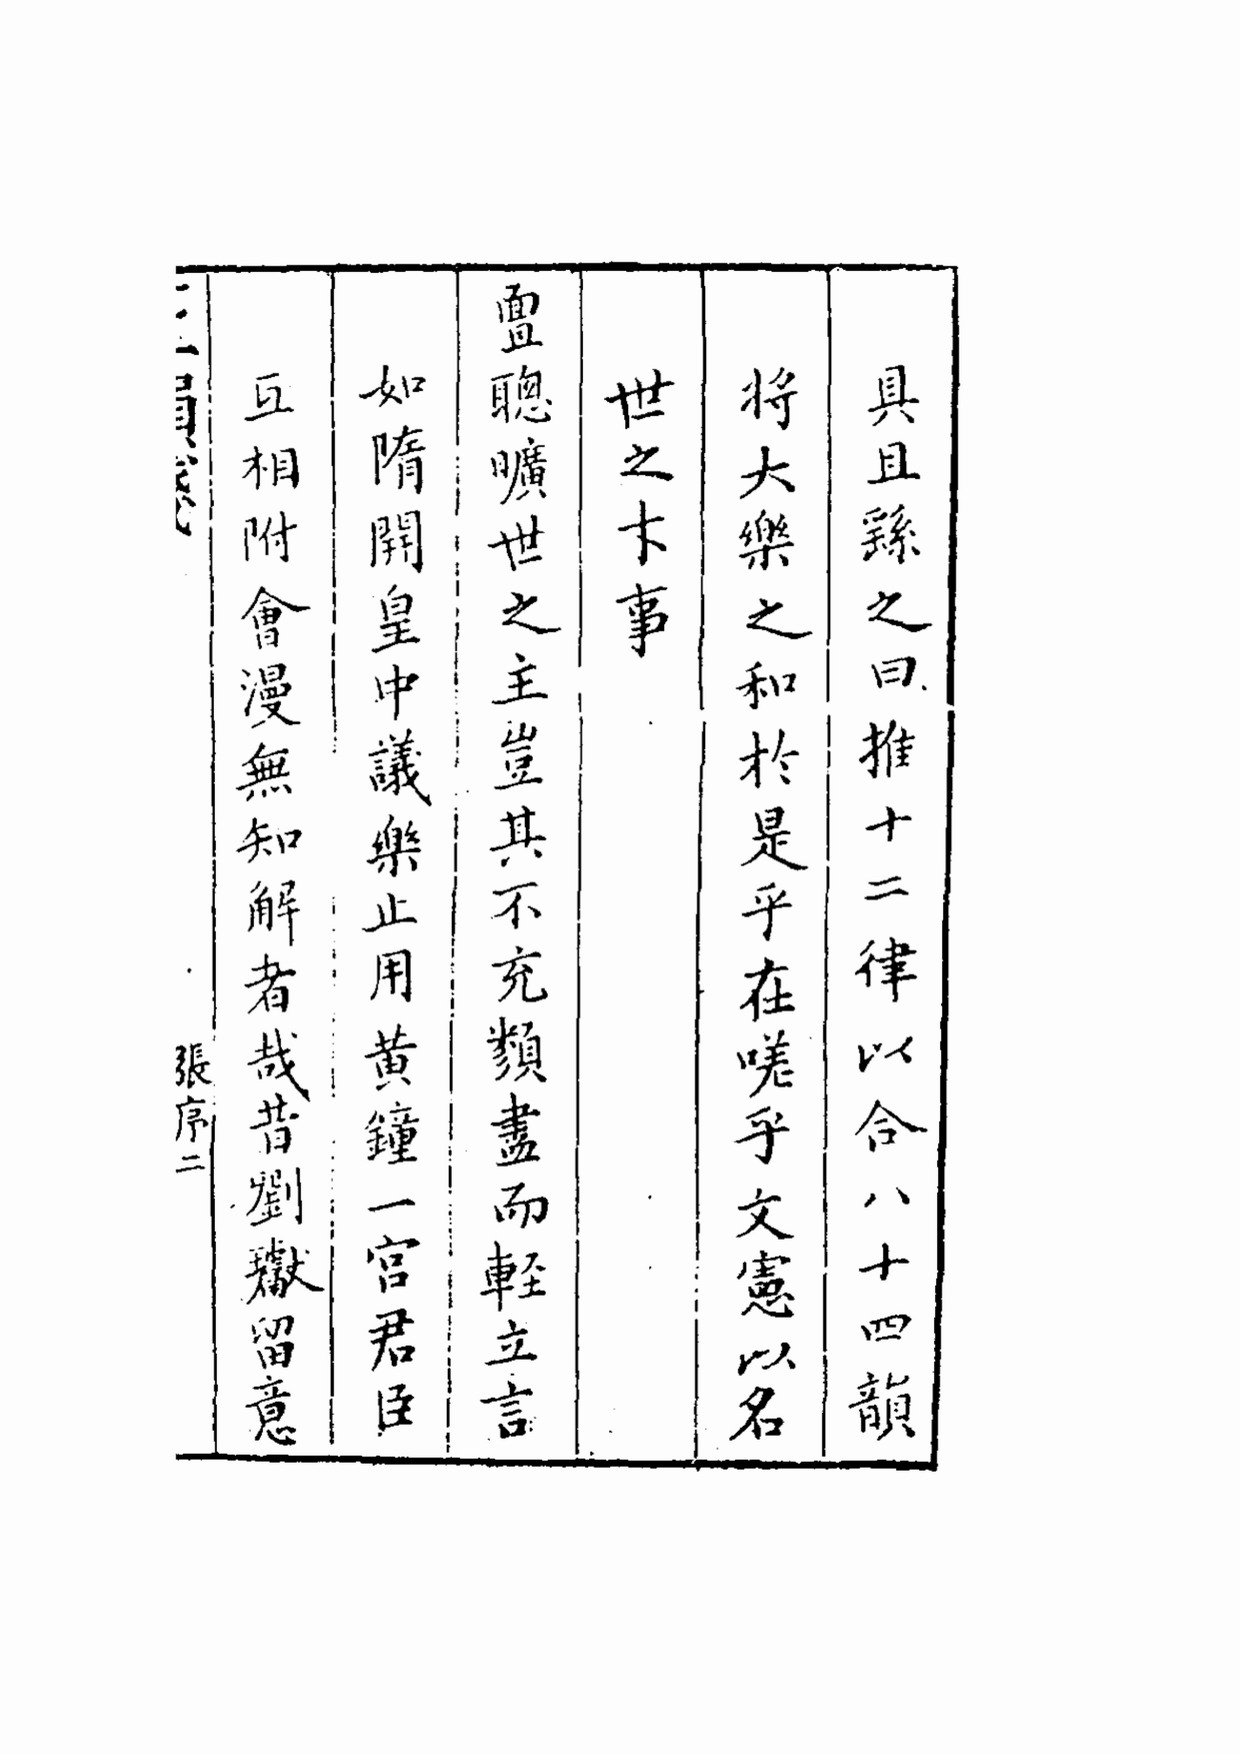 具且繇之曰推十二律以合八十四韻
将大樂之和於是乎在嗟乎文憲以名
世之卞事
聰曠世之主豈其不充類盡而輕立言
如隋開皇中議樂止用黃鐘一宮君臣
互相附會漫無知解者哉昔劉獻留意
張序二